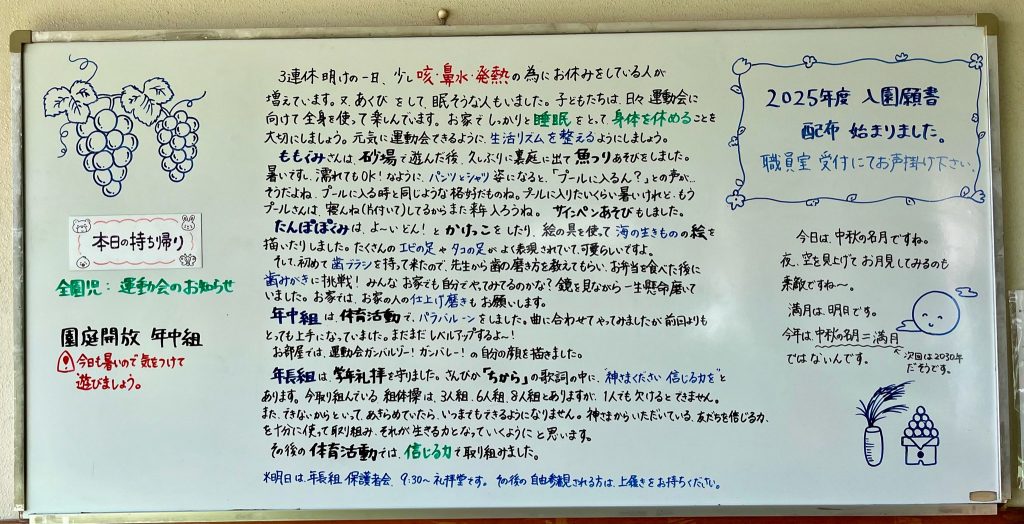 本日の持ち帰り
全園児：運動会のお知らせ
園庭開放 年中組
今日も暑いので気をつけて
遊びましょう。
3連休明けの一日、少し咳・鼻水・発熱の為にお休みをしている人が
増えています。又、あくびをして、眠そうな人もいました。子どもたちは、日々運動会に
向けて全身を使って楽しんでいます。お家でしっかりと睡眠をとって、身体を休めることを
大切にしましょう。元気に運動会できるように、生活リズムを整えるようにしましょう。
ももぐみさんは、砂場で遊んだ後、久しぶりに裏庭に出て魚つりあそびをしました。
暑いですし、濡れてもOK！なように、パンツとシャツ姿になると、「プールに入るん？」との声が…
そうだよね、プールに入る時と同じような格好だものね。プールに入りたいくらい暑いけれど、もう
プールさんは、寝んね(片付いて)してるからまた来年入ろうね。サインペンあそびもしました。
たんぽぽぐみは、よ〜いどん！とかけっこをしたり、絵の具を使って海の生きものの絵を
描いたりしました。たくさんのエビの足やタコの足がよく表現されていて、可愛らしいですよ。
そして、初めて歯ブラシを持って来たので、先生から歯の磨き方を教えてもらい、お弁当を食べた後に
歯みがきに挑戦！みんなお家でも自分でやってみてるのかな？鏡を見ながら一生懸命磨いて
いました。お家では、お家の人の仕上げ磨きもお願いします。
年中組は体育活動で、パラバルーンをしました。曲に合わせてやってみましたが前回よりも
とっても上手になっていました。まだまだレベルアップするよ〜！
お部屋では、運動会ガンバルゾー！ガンバレー！の自分の顔を描きました。
年長組は、学年礼拝を守りました。さんびか「ちから」の歌詞の中に、“神さまください 信じる力を”と
あります。今取り組んでいる組体操は、3人組、6人組、8人組とありますが、1人でも欠けるとできません。
また、できないからといって、あきらめていたら、いつまでもできるようになりません。神さまからいただいている、友だちを信じる力、
を十分に使って取り組み、それが生きる力となっていくようにと思います。
その後の体育活動では、信じる力で取り組みました。
※明日は、年長組 保護者会、9:30〜礼拝堂です。その後の自由参観される方は、上履きをお持ちください。
2025年度 入園願書
配布 始まりました。
職員室 受付にてお声掛け下さい。
今日は、中秋の名月ですね。
夜、空を見上げてお月見してみるのも
素敵ですね〜。
満月は、明日です。
今年は、中秋の名月＝満月
ではないんです。
次回は2030年
だそうです。